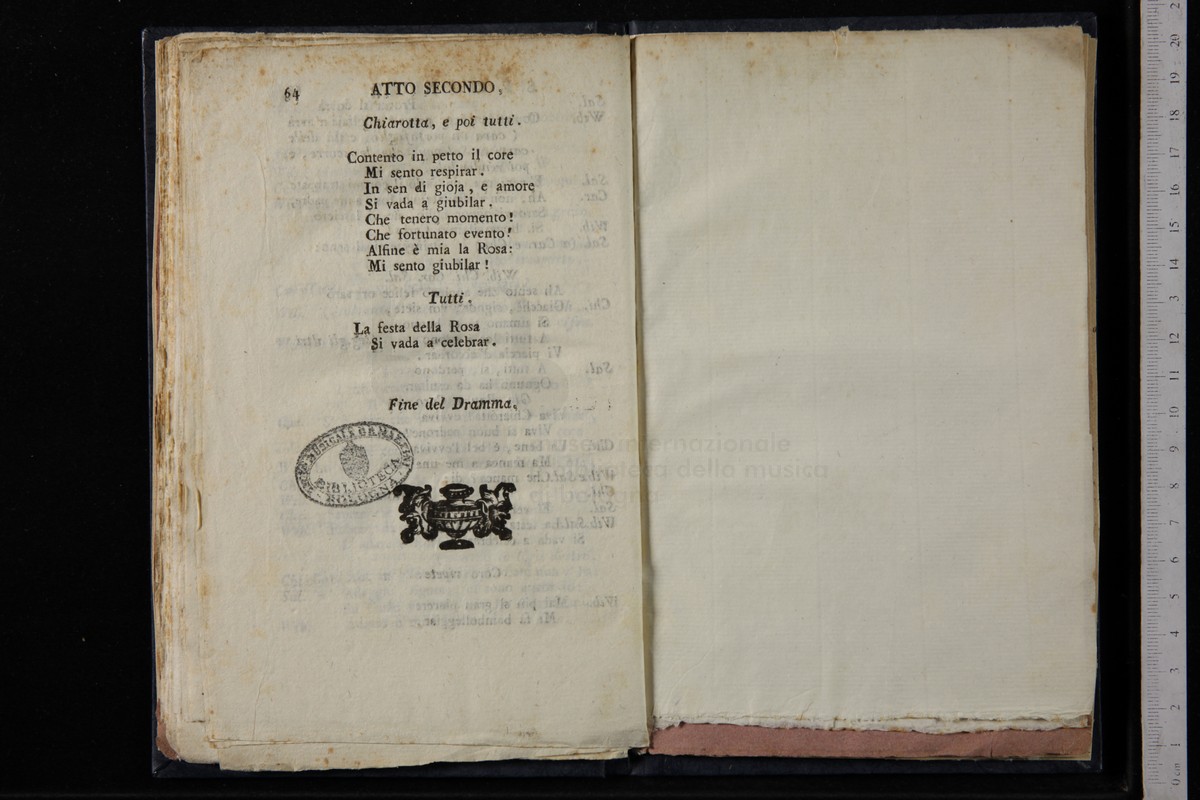 64 ATTO SECONDO,
Chiarotta, e poi tutti.
Contento in petto il core
Mi sento respirar.
In sen di gioja, e amore
Si vada a giubilar.
Che tenero momento!
Che fortunato evento!
Alfine è mia la Rosa:
Mi sento giubilar!
Tutti.
La festa della Rosa
Si vada a celebrar.
Fine del Dramma.
BIBLIOTECA
BOLOGNA
museo internazionale
e biblioteca della musica
di bologna